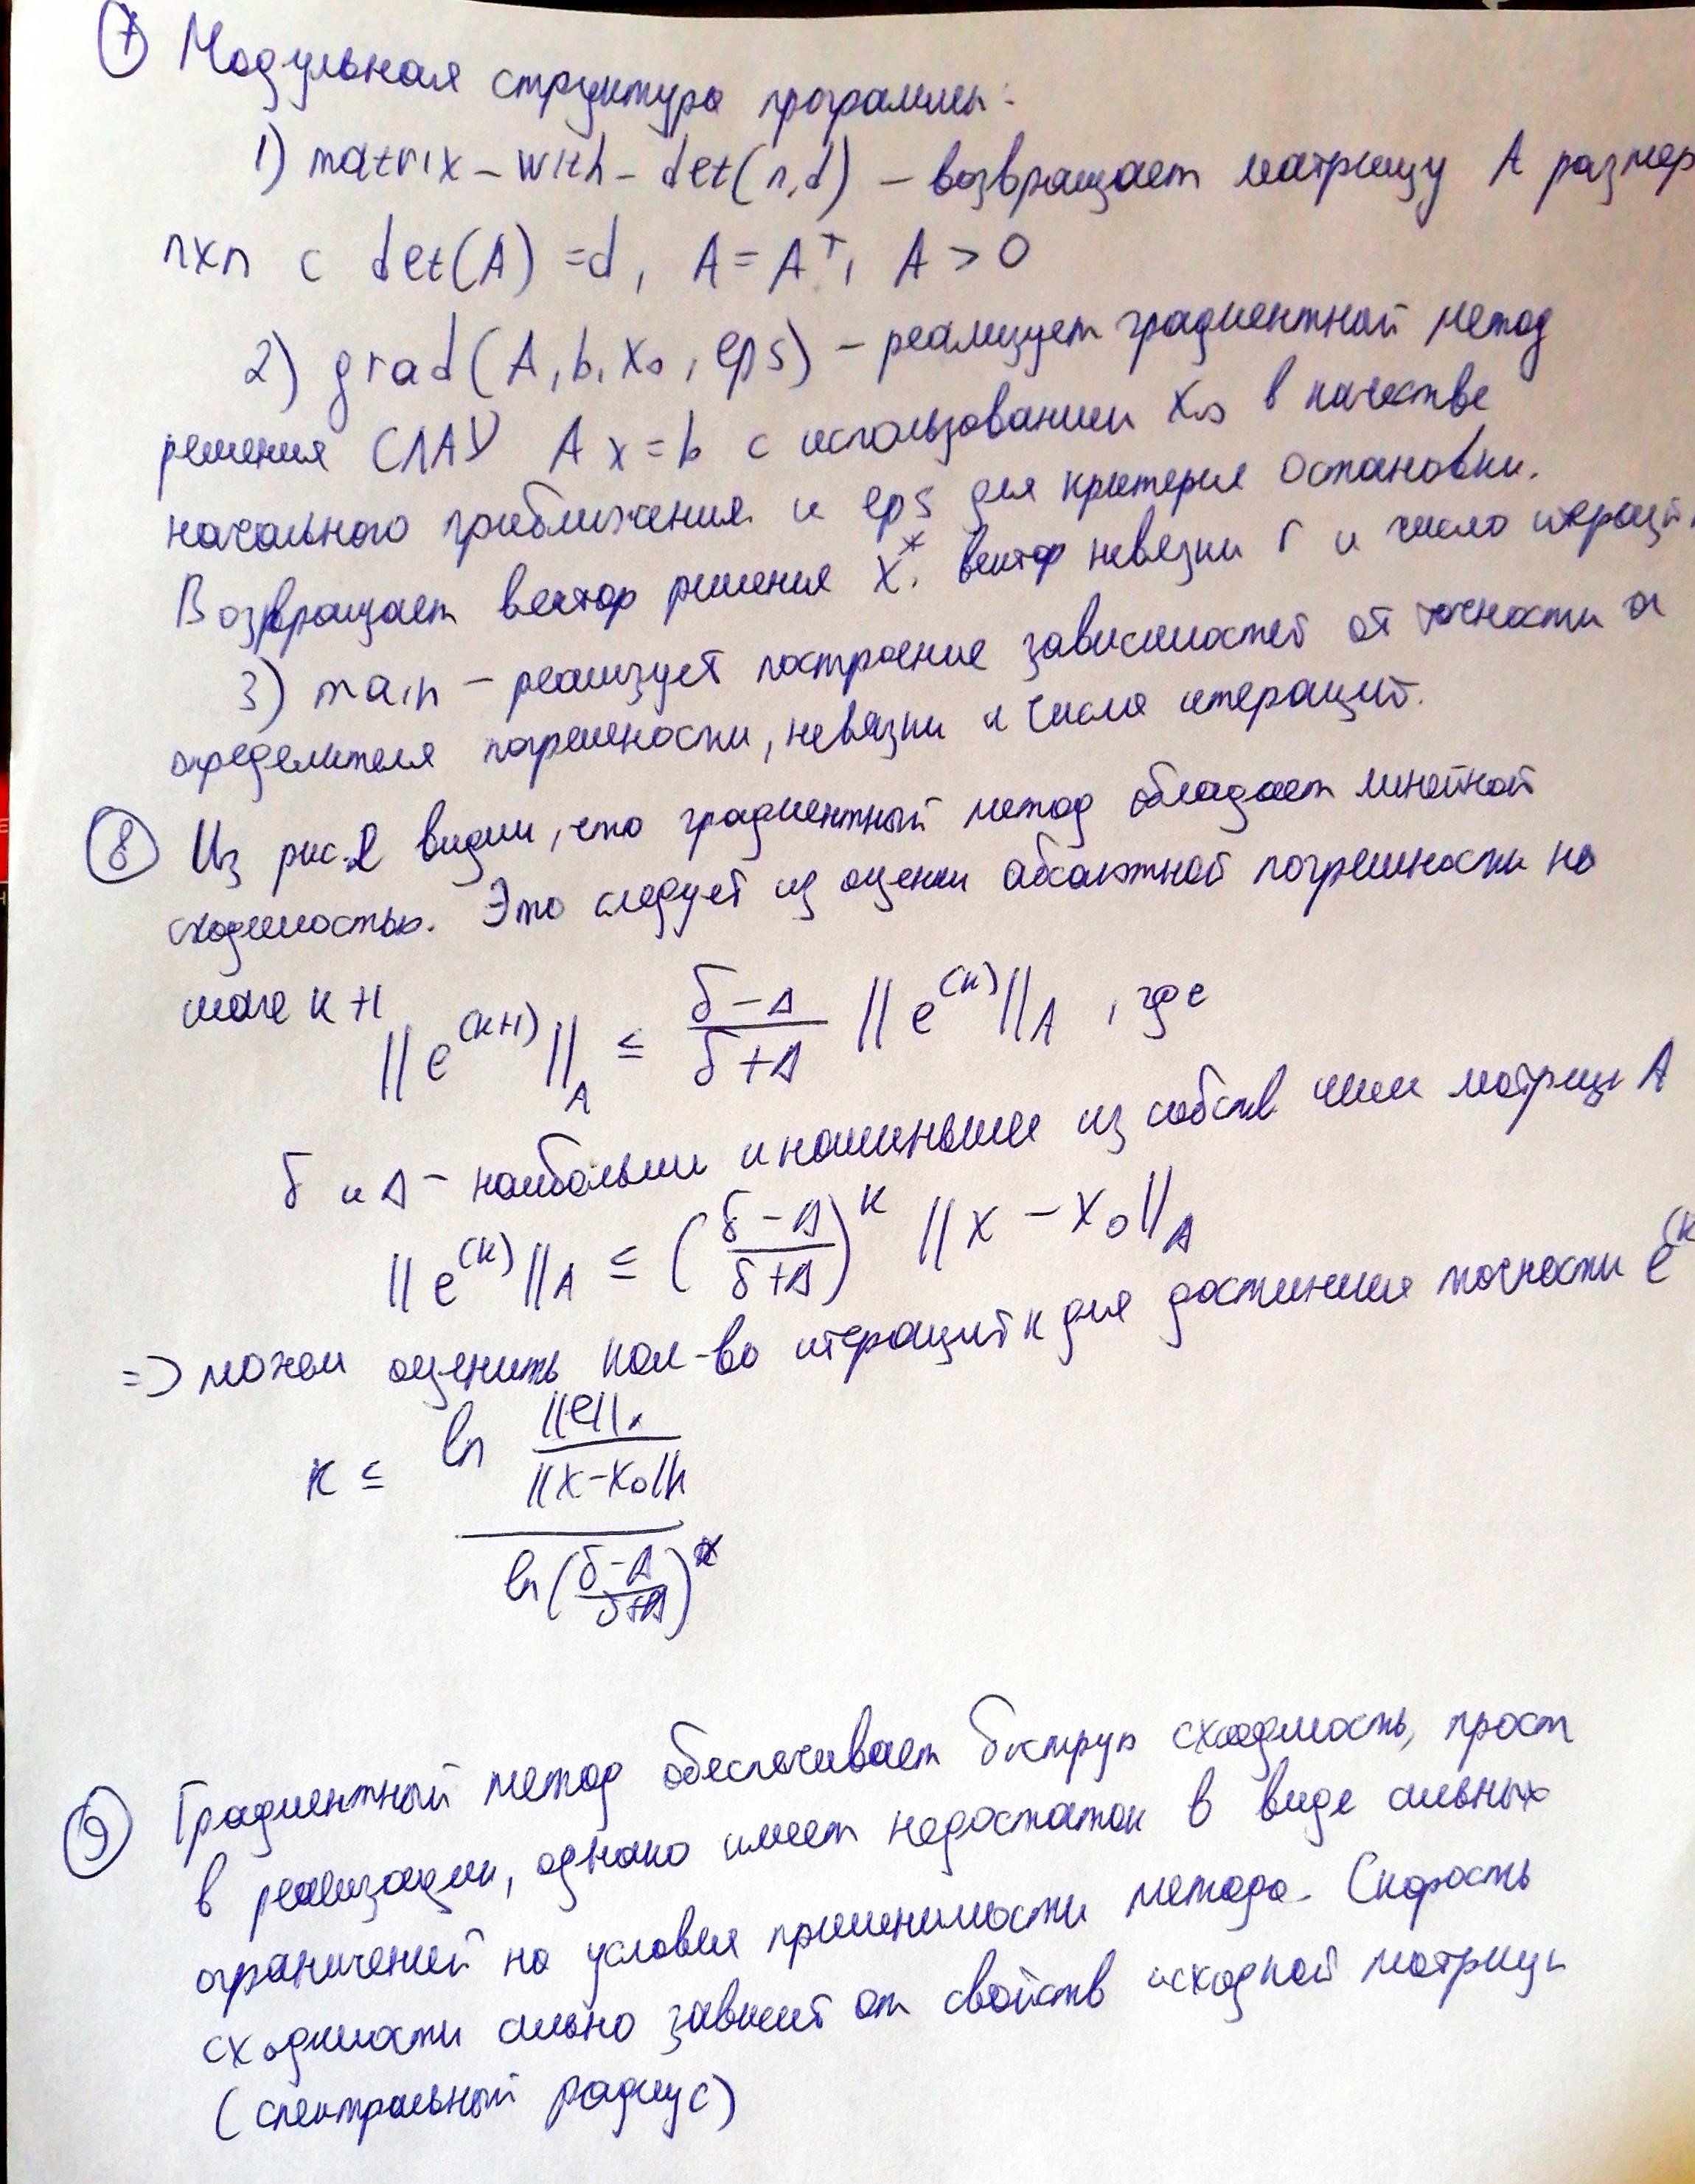 ⑦ Модульная структура программы:
1) matrix-with-det(n,d) – возвращает матрицу A размер
n×n с det(A)=d, A=Aᵀ, A>0
2) grad(A,b,x₀,eps) – реализует градиентный метод
решения СЛАУ Ax=b с использованием x₀ в качестве
начального приближения и eps для критерия остановки.
Возвращает вектор решения x*, вектор невязки r и число итераций
3) main – реализует построение зависимостей от точности и
определителя погрешности, невязки и числа итераций.
⑧ Из рис.2 видим, что градиентный метод обладает линейной
сходимостью. Это следует из оценки абсолютной погрешности на
шаге k+1
||e⁽ᵏ⁺¹⁾||_A ≤ (δ-Δ)/(δ+Δ) ||e⁽ᵏ⁾||_A, где
δ и Δ – наибольшее и наименьшее из собств чисел матрицы A
||e⁽ᵏ⁾||_A ≤ ((δ-Δ)/(δ+Δ))ᵏ ||x-x₀||_A
=> можем оценить кол-во итераций k для достижения точности e⁽ᵏ
k ≤ ln (||e||/||x-x₀||) / ln((δ-Δ)/(δ+Δ))
⑨ Градиентный метод обеспечивает быструю сходимость, прост
в реализации, однако имеет недостаток в виде сильных
ограничений на условия применимости метода. Скорость
сходимости сильно зависит от свойств исходной матрицы
(спектральный радиус)